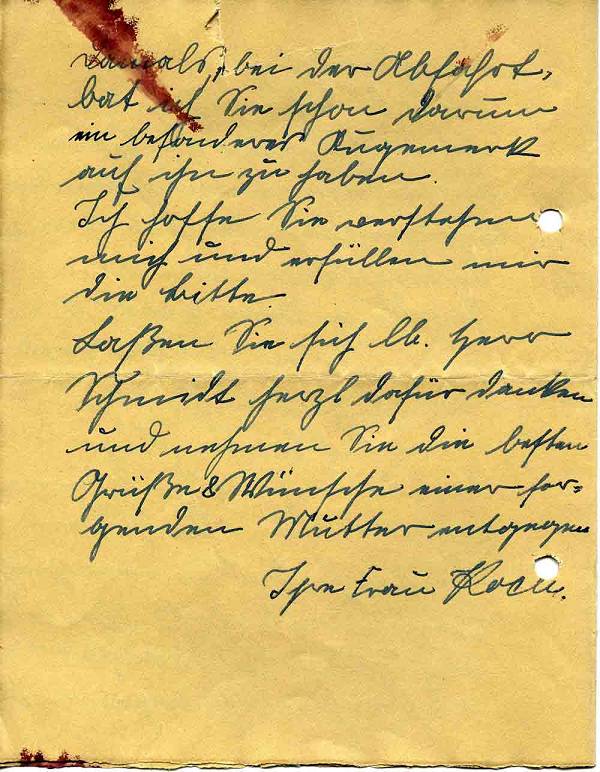 damals, bei der Abfahrt,
bat ich Sie schon darum
ein besonderes Augemerk
auf ihn zu haben.
Ich hoffe Sie verstehen
mich und erfüllen mir
die Bitte.
Laßen Sie sich lb. Herr
Schmidt herzl dafür danken
und nehmen Sie die besten
Grüße & Wünsche einer sor=
genden Mutter entgegen
Ihre Frau Koch.